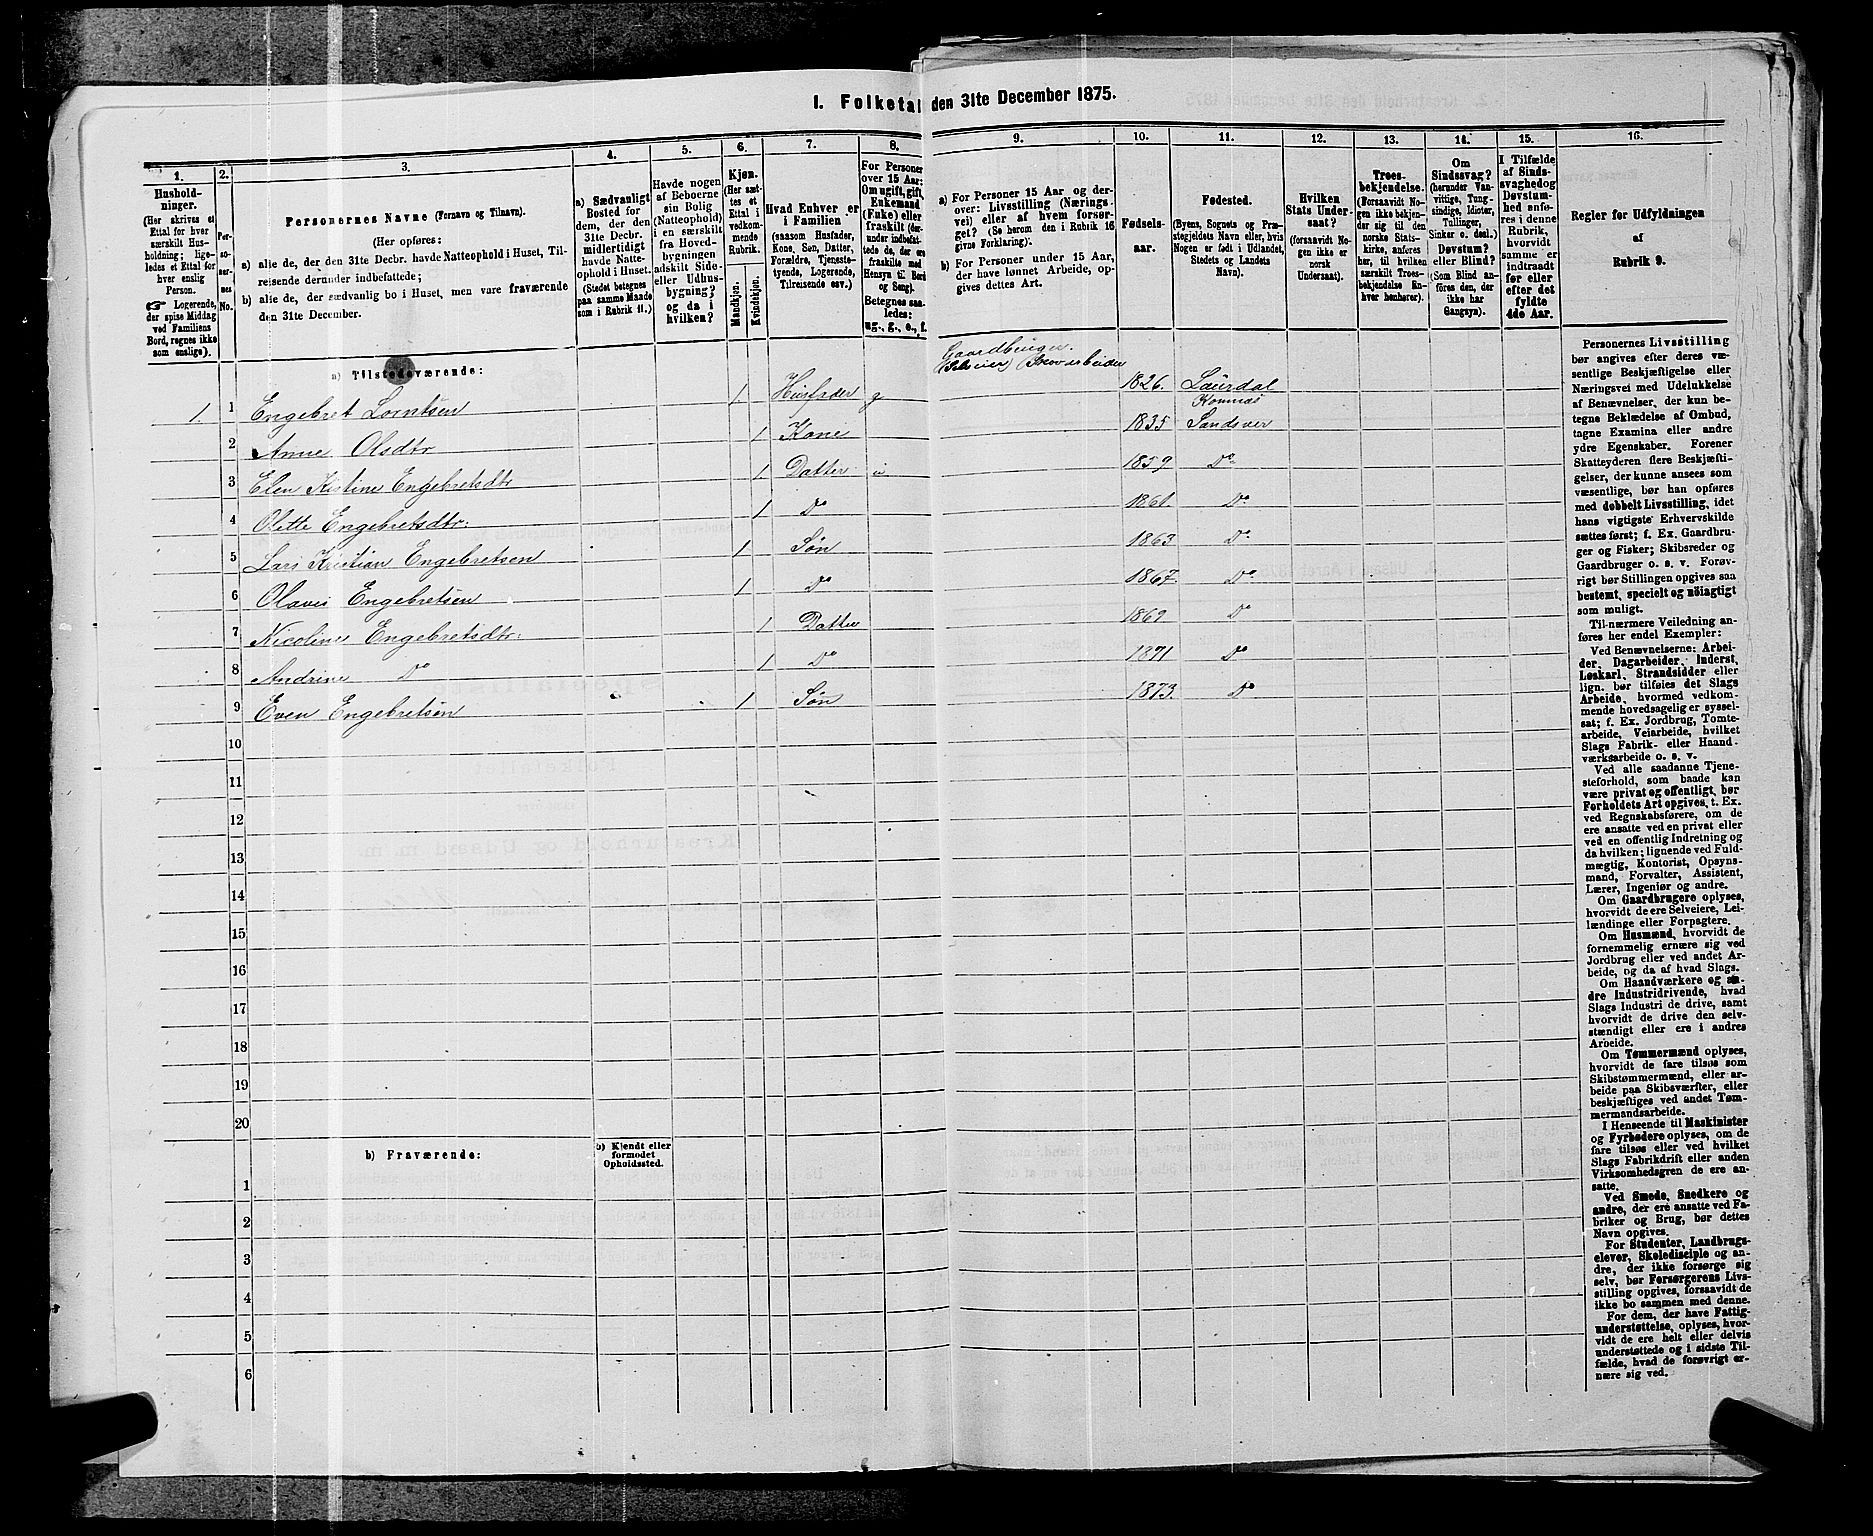 I. Folketal den 31te December 1875.
1.
Hushold-
ninger.
(Her skrives et
Ettal for hver
særskilt Hus-
holdning; lige-
ledes et Ettal for
hver enslig
Person.
Logerende,
der spise Middag
ved Familiens
Bord, regnes ikke
som enslige).
2.
Per-
so-
ner-
nes
No.
3.
Personernes Navne (Fornavn og Tilnavn).
(Her opføres:
a) alle de, der den 31te Decbr. havde Natteophold i Huset, Til-
reisende derunder indbefattede;
b) alle de, der sædvanlig bo i Huset, men vare fraværende
den 31te December.
4.
a) Sædvanligt
Bosted for
dem, der den
31te Decbr.
midlertidigt
havde Natte-
ophold i Huset.
(Stedet betegnes
paa samme Maade
som i Rubrik 11.)
5.
Havde nogen
af Beboerne
sin Bolig
(Natteophold)
i en særskilt
fra Hoved-
bygningen
adskilt Side-
eller Udhus-
bygning?
og da i
hvilken?
6.
Kjøn.
(Her sæt-
tes et
Ettal i
vedkom-
mende
Rubrik.
Mandkjøn.
Kvindekjøn.
7.
Hvad Enhver er
i Familien
(saasom Husfader,
Kone, Søn, Datter,
Forældre, Tjeneste-
tyende, Logerende,
Tilreisende osv.)
8.
For Personer
over 15 Aar:
Om ugift, gift,
Enkemand
(Enke) eller
fraskilt (der-
under indbefat-
tede de, der ere
fraskilte med
Hensyn til Bord
og Seng).
Betegnes saa-
ledes:
ug., g., e., f.
9.
a) For Personer 15 Aar og der-
over: Livsstilling (Nærings-
vei) eller af hvem forsør-
get? (Se herom den i Rubrik 16
givne Forklaring).
b) For Personer under 15 Aar,
der have lønnet Arbeide, op-
gives dettes Art.
10.
Fødsels-
aar.
11.
Fødested.
(Byens, Sognets og Præ-
stegjeldets Navn eller, hvis
Nogen er født i Udlandet,
Stedets og Landets
Navn).
12.
Hvilken
Stats Under-
saat?
(forsaavidt No-
gen ikke er
norsk
Undersaat).
13.
Troes-
bekjendelse.
(Forsaavidt No-
gen ikke bekjen-
der sig til den
norske Stats-
kirke, anføres
her, til hvilken
særskilt Troes-
bekjendelse En-
hver henhører).
14.
Om
Sindssvag?
(herunder Van-
vittige, Tung-
sindige, Idioter,
Tullinger,
Sinker o. desl.)
Døvstum?
eller Blind?
(Som Blind an-
føres den, der
ikke har
Gangsyn).
15.
I Tilfælde
af Sinds-
svaghed og
Døvstum-
hed, anfø-
res i denne
Rubrik,
hvorvidt
samme er
indtraadt
før eller
efter det
fyldte
4de Aar.
16.
Regler for Udfyldningen
af
Rubrik 9.
a) Tilstedeværende:
Gaardbruger
(Selveier) Skovarbeider
1. 1 Engebret Lorntsen 1. Husfader g 1826. Laurdal
Komnes
2 Anne Olsdtr 1 Kone 1835 Sandsver
3 Elen Kistine Engebretsdtr 1. Datter u 1859. Do
4 Olette Engebretsdtr: 1 Do 1861. Do
5 Lars Kristian Engebretsen 1 Søn 1863 Do
6 Olaves Engebretsen 1 Do 1867. Do
7 Nicoline Engebretsdtr: 1 Datter 1869 Do
8 Andrine Do 1 Do 1871 Do
9 Even Engebretsen 1 Søn 1873. Do
10
11
12
13
14
15
16
17
18
19
20
b) Fraværende:
b) Kjendt eller
formodet
Opholdssted.
1
2
3
4
5
6
Personernes Livsstilling
bør angives efter deres væ-
sentlige Beskjæftigelse eller
Næringsvei med Udelukkelse
af Benævnelser, der kun be-
tegne Beklædelse af Ombud,
tagne Examina eller andre
ydre Egenskaber. Forener
Skatteyderen flere Beskjæfti-
gelser, der kunne ansees som
væsentlige, bør han opføres
med dobbelt Livsstilling, idet
hans vigtigste Erhvervskilde
sættes først; f. Ex. Gaardbru-
ger og Fisker; Skibsreder og
Gaardbruger o. s. v. Forøv-
rigt bør Stillingen opgives saa
bestemt, specielt og nøiagtigt
som muligt.
Til nærmere Veiledning an-
føres her endel Exempler:
Ved Benævnelserne: Arbei-
der, Dagarbeider, Inderst,
Løskarl, Strandsidder eller
lign. bør tilføies det Slags
Arbeide, hvormed vedkom-
mende hovedsagelig er syssel-
sat; f. Ex. Jordbrug, Tomte-
arbeide, Veiarbeide, hvilket
Slags Fabrik- eller Haand-
værksarbeide o. s. v.
Ved alle saadanne Tjene-
steforhold, som baade kan
være privat og offentligt, bør
Forholdets Art opgives, t. Ex.
ved Regnskabsførere, om de
ere ansatte ved en privat eller
ved en offentlig Indretning og
da hvilken; lignende ved Fuld-
mægtig, Kontorist, Opsyns-
mand, Forvalter, Assistent,
Lærer, Ingeniør og andre.
Om Gaardbrugere oplyses,
hvorvidt de ere Selveiere, Lei-
lændinge eller Forpagtere.
Om Husmænd, hvorvidt de
fornemmelig ernære sig ved
Jordbrug eller ved andet Ar-
beide, og da af hvad Slags.
Om Haandværkere og an-
dre Industridrivende, hvad
Slags Industri de drive, samt
hvorvidt de drive den selv-
stændigt eller ere i andres
Arbeide.
Om Tømmermænd oplyses,
hvorvidt de fare tilsøs som
Skibstømmermænd, eller ar-
beide paa Skibsværfter, eller
beskjæftiges ved andet Tøm-
mermandsarbeide.
I Henseende til Maskinister
og Fyrbødere oplyses, om de
fare tilsøs eller ved hvilket
Slags Fabrikdrift eller anden
Virksomhedsgren de ere an-
satte.
Ved Smede, Snedkere og
andre, der ere ansatte ved Fa-
briker og Brug, bør dettes
Navn opgives.
For Studenter, Landbrugs-
elever, Skoledisciple og an-
dre, der ikke forsørge sig
selv, bør Forsørgerens Livs-
stilling opgives, forsaavidt de
ikke bo sammen med denne.
For dem, der have Fattig-
understøttelse, oplyses, hvor-
vidt de ere helt eller delvis
understøttede og i sidste Til-
fælde, hvad de forøvrigt er-
nære sig ved.